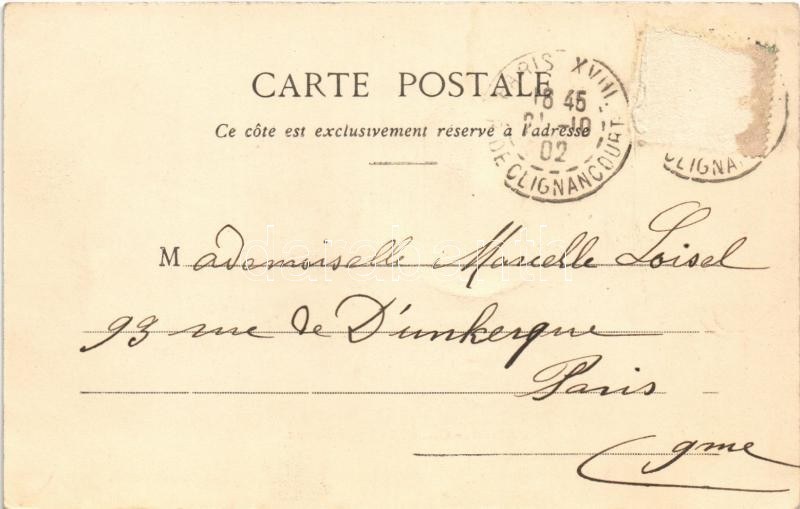 CARTE POSTALE
Ce côte est exclusivement réservé à l'adresse
PARIS XVIII
18 45
21 -10
02
DE CLIGNANCOURT
CLIGNAN
Mademoiselle Marcelle Loisel
93 rue de D'unkerque
Paris